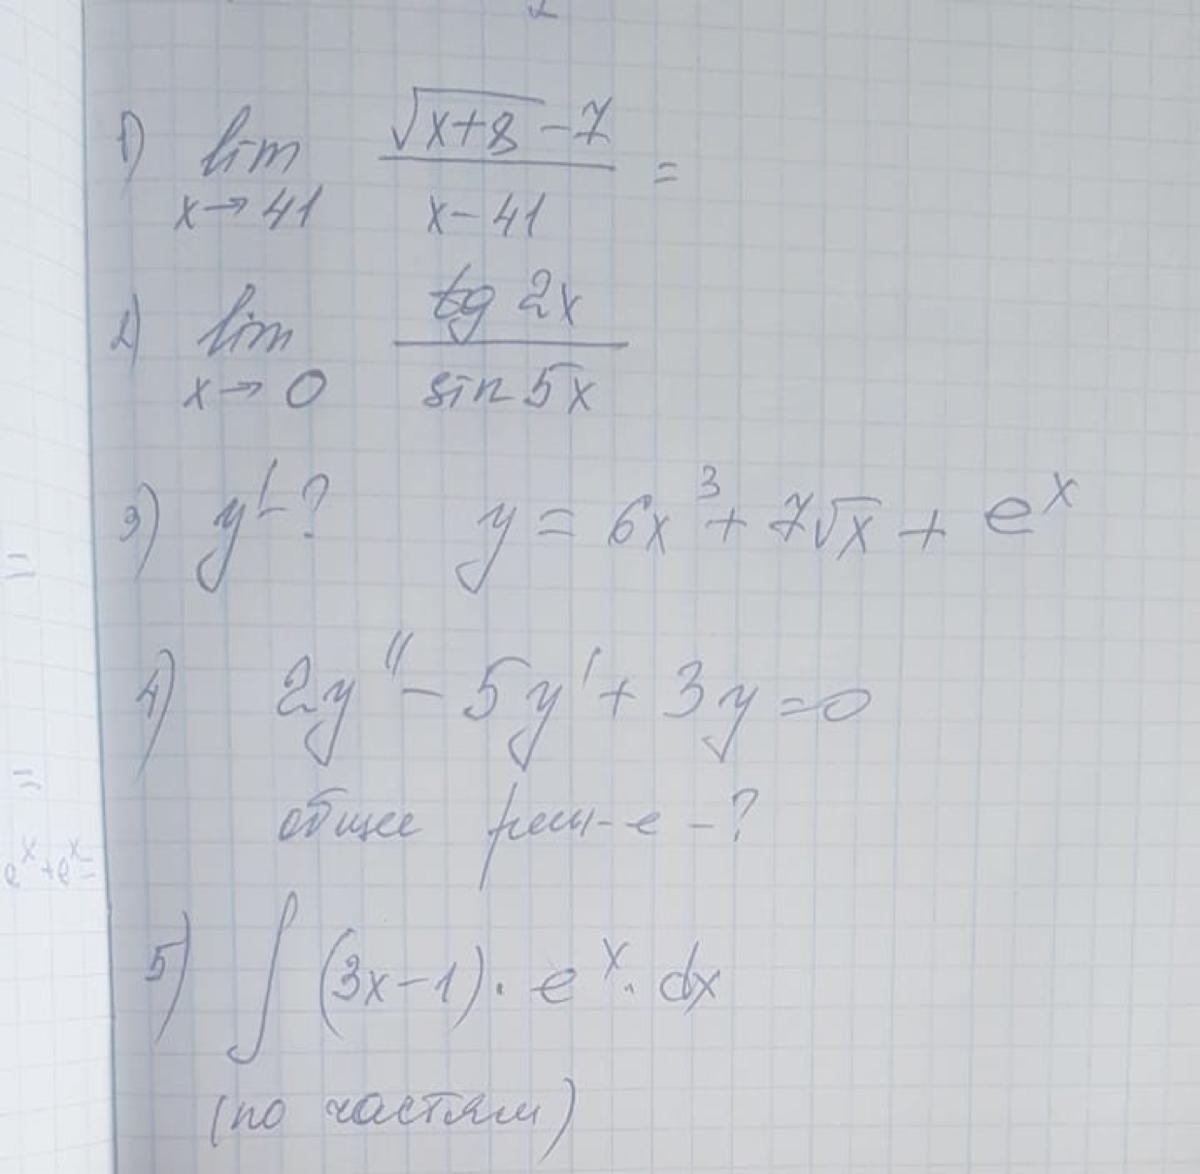 1) lim x→41 (√(x+8) - 7)/(x - 41) =
2) lim x→0 tg 2x / sin 5x
3) y' - ? y = 6x³ + 7√x + eˣ
4) 2y'' - 5y' + 3y = 0
общее реш-е - ?
5) ∫ (3x - 1) · eˣ · dx
(по частям)
=
=
eˣ + eˣ =